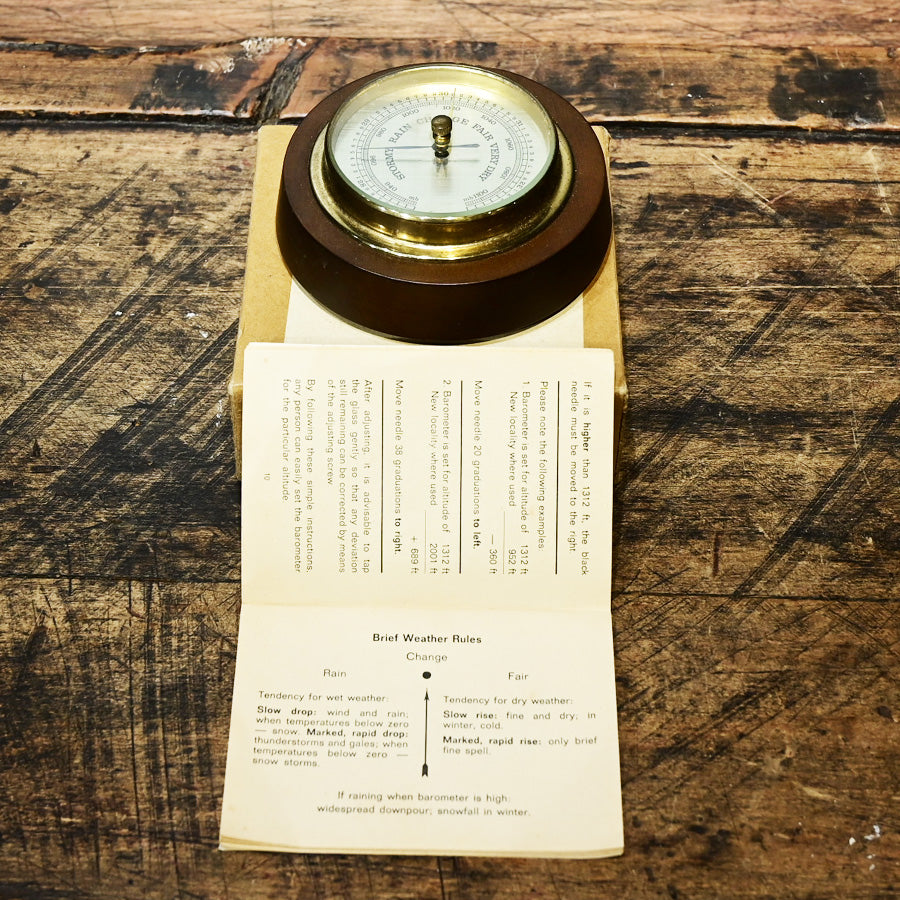 STORMY RAIN CHANGE FAIR VERY DRY
940
960
980
1000
1020
1040
1060
mb
mb
If it is higher than 1312 ft, the black
needle must be moved to the right.
Please note the following examples:
1. Barometer is set for altitude of 1312 ft
New locality where used 952 ft
— 360 ft
Move needle 20 graduations to left.
2. Barometer is set for altitude of 1312 ft
New locality where used 2001 ft
+ 689 ft
Move needle 38 graduations to right.
After adjusting, it is advisable to tap
the glass gently so that any deviation
still remaining can be corrected by means
of the adjusting screw.
By following these simple instructions,
any person can easily set the barometer
for the particular altitude
10
Brief Weather Rules
Change
Rain Fair
Tendency for wet weather:
Slow drop: wind and rain;
when temperatures below zero
— snow. Marked, rapid drop:
thunderstorms and gales; when
temperatures below zero —
snow storms.
Tendency for dry weather:
Slow rise: fine and dry; in
winter, cold.
Marked, rapid rise: only brief
fine spell.
If raining when barometer is high:
widespread downpour; snowfall in winter.